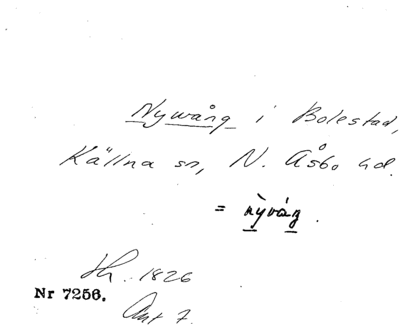 Nywång i Bolestad,
Källna sn, N. Åsbo hd.
= nỳváŋ.
Hh. 1826
Nr 7256.
Ant 7.